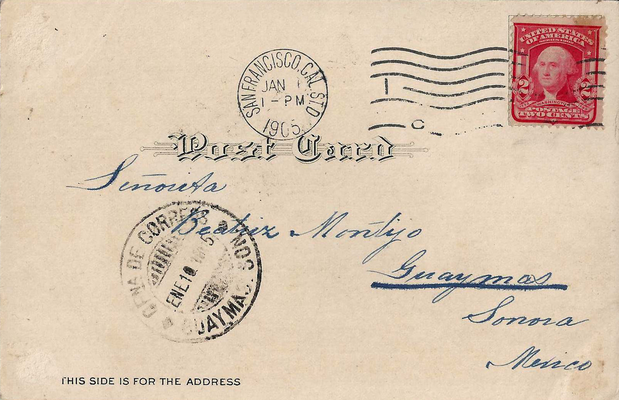 SAN FRANCISCO, CAL. STA.
JAN 1
1-PM
1905
1
C
UNITED STATES
OF AMERICA
2 2
WASHINGTON
POSTAGE
TWO CENTS
Post Card
Señorita
Beatriz Montijo
Guaymas
Sonora
Mexico
DE CORREOS
ENE 10
SON.
GUAYMAS
THIS SIDE IS FOR THE ADDRESS